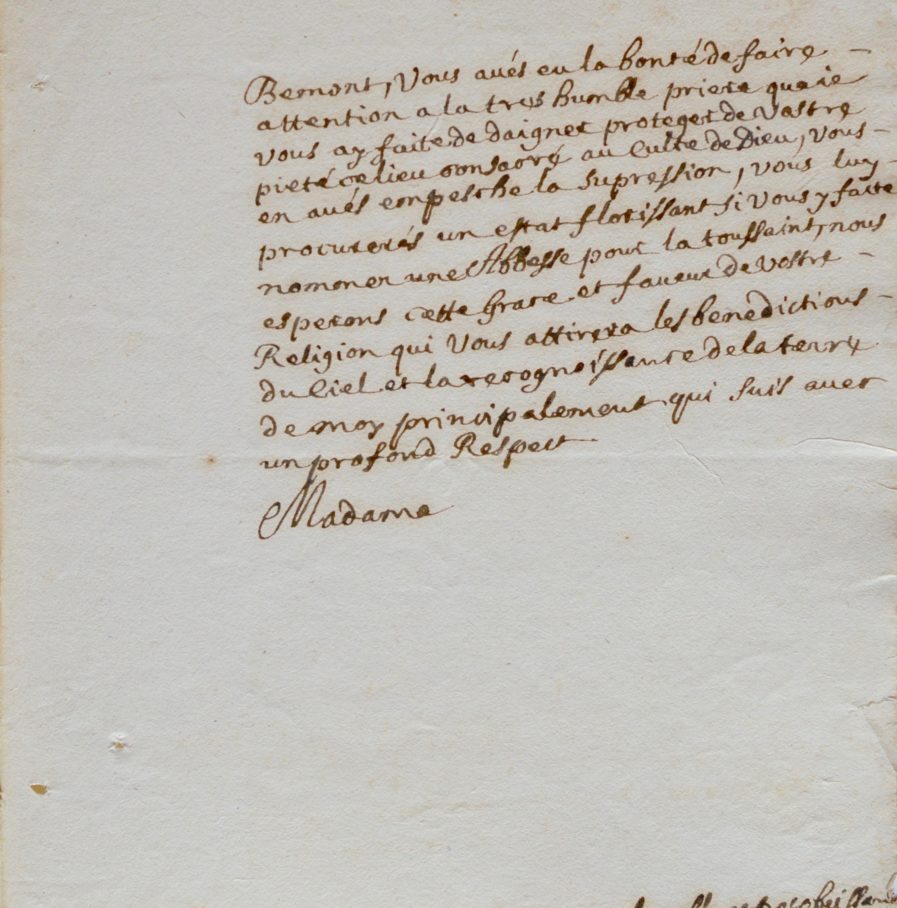 Bemont, Vous avés eu la bonté de faire
attention a la tres humble priere que ie
vous ay faite de daigner proteger de Vostre
pieté ce lieu consacré au Culte de Dieu, Vous
en avés empesche la supression, vous luy
procurerés un estat florissant si vous y faite
nommer une Abbesse pour la toussaint, nous
esperons cette Grace et faveur de vostre
Religion qui Vous attirera les benedictions
du Ciel et la recognoissance de la terre
de moy principalement qui suis avec
un profond Respect
Madame